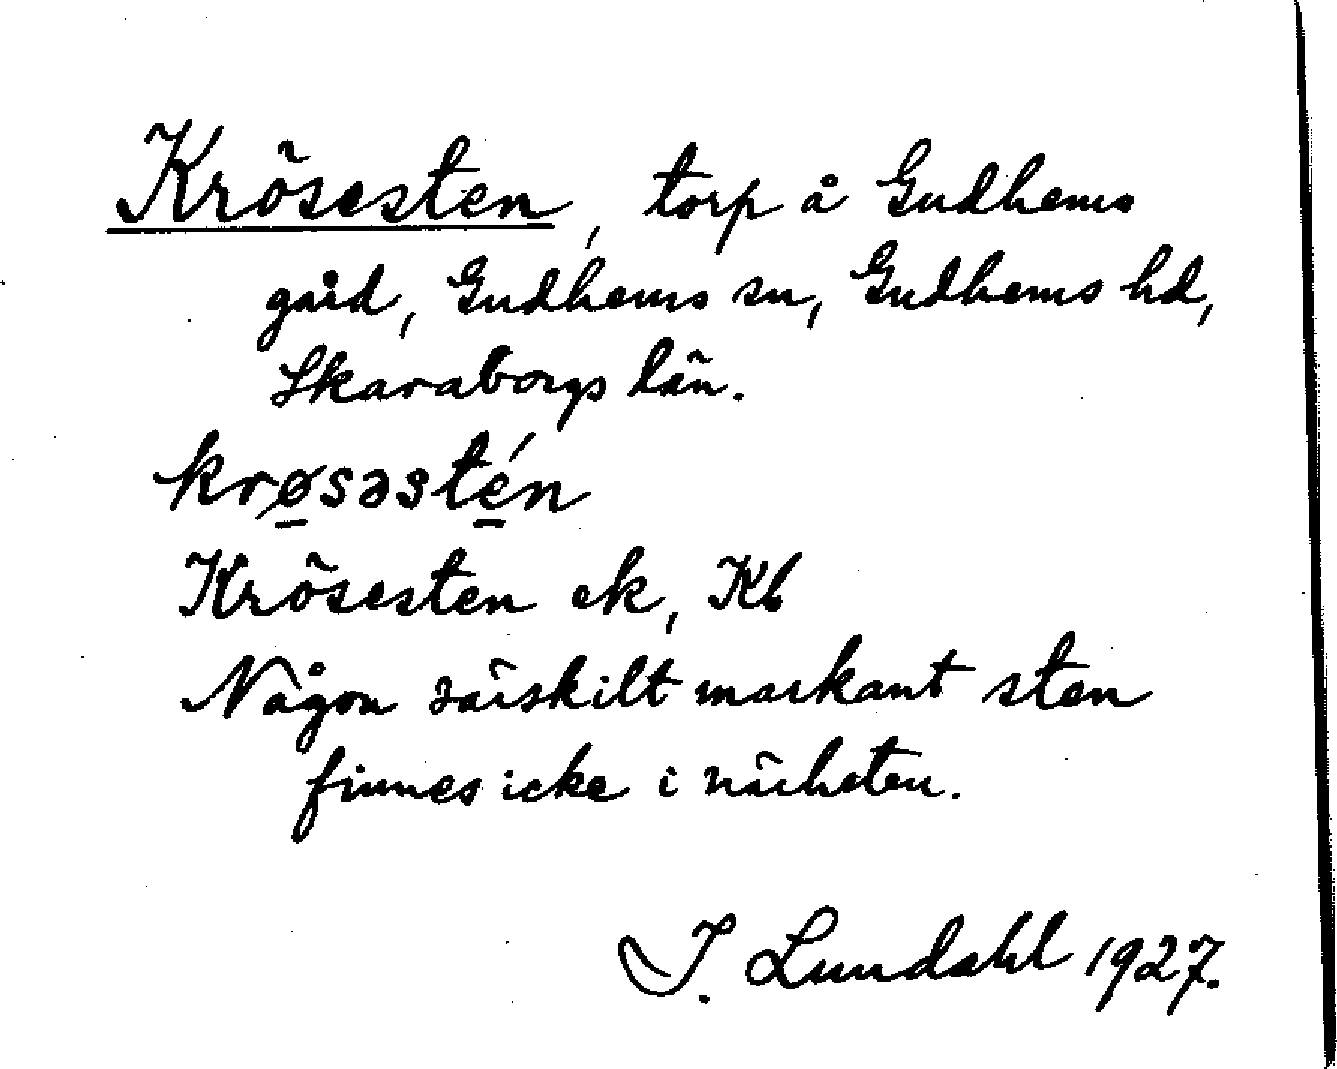 Krösesten, torp å Gudhems
gård, Gudhems sn, Gudhems hd,
Skaraborgs län.
krø̱səsté̱n
Krösesten ek, Kb
Någon särskilt markant sten
finnes icke i närheten.
I. Lundahl 1927.